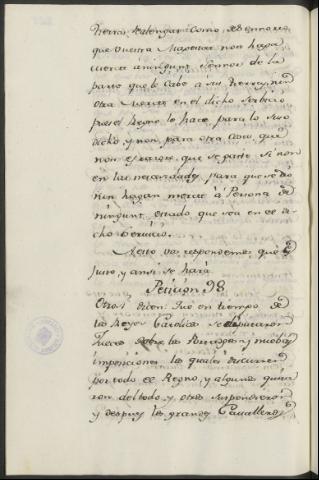 tierras Realengas como de Señorio
que vuestra Magestad non haga
merced à ningunt Señor de la
parte que le cabe à sus tierras, nin
otra merced en el dicho servicio
pues el Reyno lo hace para lo suso
dicho, y non para otra cosa, que
non es razon, que se gaste si non
en las necesidades, para que se dà
nin hagan merced à Persona de
ningunt estado que sea en el di-
cho servicio.
A esto vos respondemos que es
Justo, y ansi se harà
Peticion 98.
Otrosi dicen: que en tiempo de
los Reyes Catolicos se diputaron
Jueces sobre los Portazgos, y nuebas
imposiciones los quales discurrieron
por todo el Reyno, y algunas quita-
ron del todo, y otras suspendieron
y despues los grandes Cavalleros